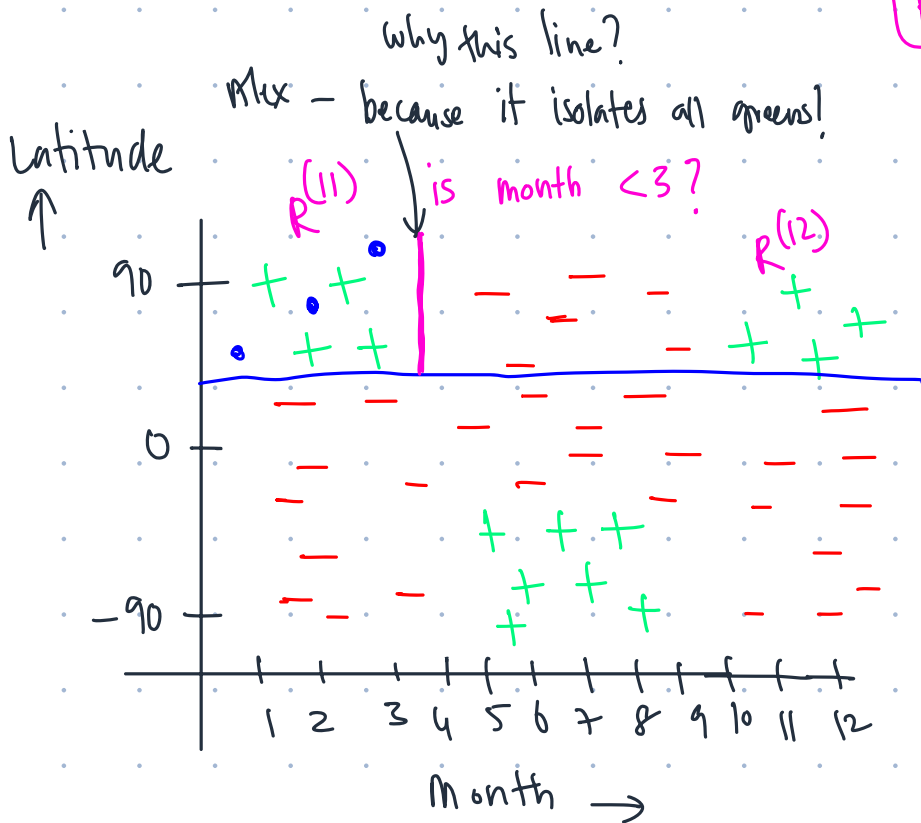 why this line?
Alex – because it isolates all greens!
Latitude
R^(11) is month <3?
R^(12)
90
0
–90
1 2 3 4 5 6 7 8 9 10 11 12
Month